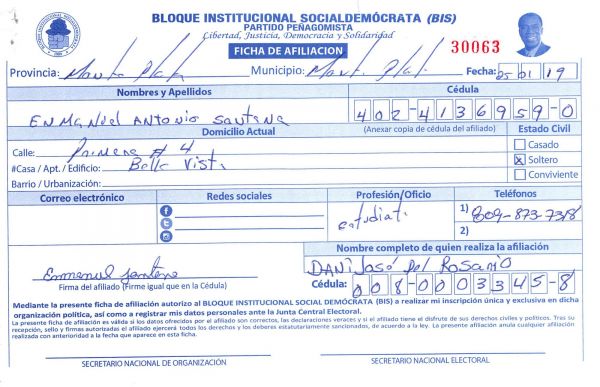 BLOQUE INSTITUCIONAL SOCIALDEMÓCRATA (BIS)
PARTIDO PEÑAGOMISTA
Libertad, Justicia, Democracia y Solidaridad
FICHA DE AFILIACION 30063
Provincia: Monte Plata Municipio: Monte Plata Fecha: 05 01 19
Nombres y Apellidos Cédula
Enmanuel Antonio Santana 402-4136959-0
Domicilio Actual (Anexar copia de cédula del afiliado) Estado Civil
Calle: Primera # 4 Casado
#Casa / Apt. / Edificio: Bella Vista x Soltero
Barrio / Urbanización: Conviviente
Correo electrónico Redes sociales Profesión/Oficio Teléfonos
estudiat. 1) 809-873-7318
2)
Nombre completo de quien realiza la afiliación
Enmanuel Santana Dani José Del Rosario
Firma del afiliado (Firme igual que en la Cédula) Cédula: 008-0003345-8
Mediante la presente ficha de afiliación autorizo al BLOQUE INSTITUCIONAL SOCIAL DEMÓCRATA (BIS) a realizar mi inscripción única y exclusiva en dicha
organización política, así como a registrar mis datos personales ante la Junta Central Electoral.
La presente ficha de afiliación es válida si los datos ofrecidos por el afiliado son correctos, las declaraciones veraces y si el afiliado tiene el disfrute de sus derechos civiles y políticos. Tras su
recepción, sello y firmas autorizadas el afiliado ejercerá todos los derechos y los deberes estatutariamente sancionados, de acuerdo a la ley. La presente afiliación anula cualquier afiliación
realizada con anterioridad a la fecha que aparece en esta ficha.
SECRETARIO NACIONAL DE ORGANIZACIÓN SECRETARIO NACIONAL ELECTORAL